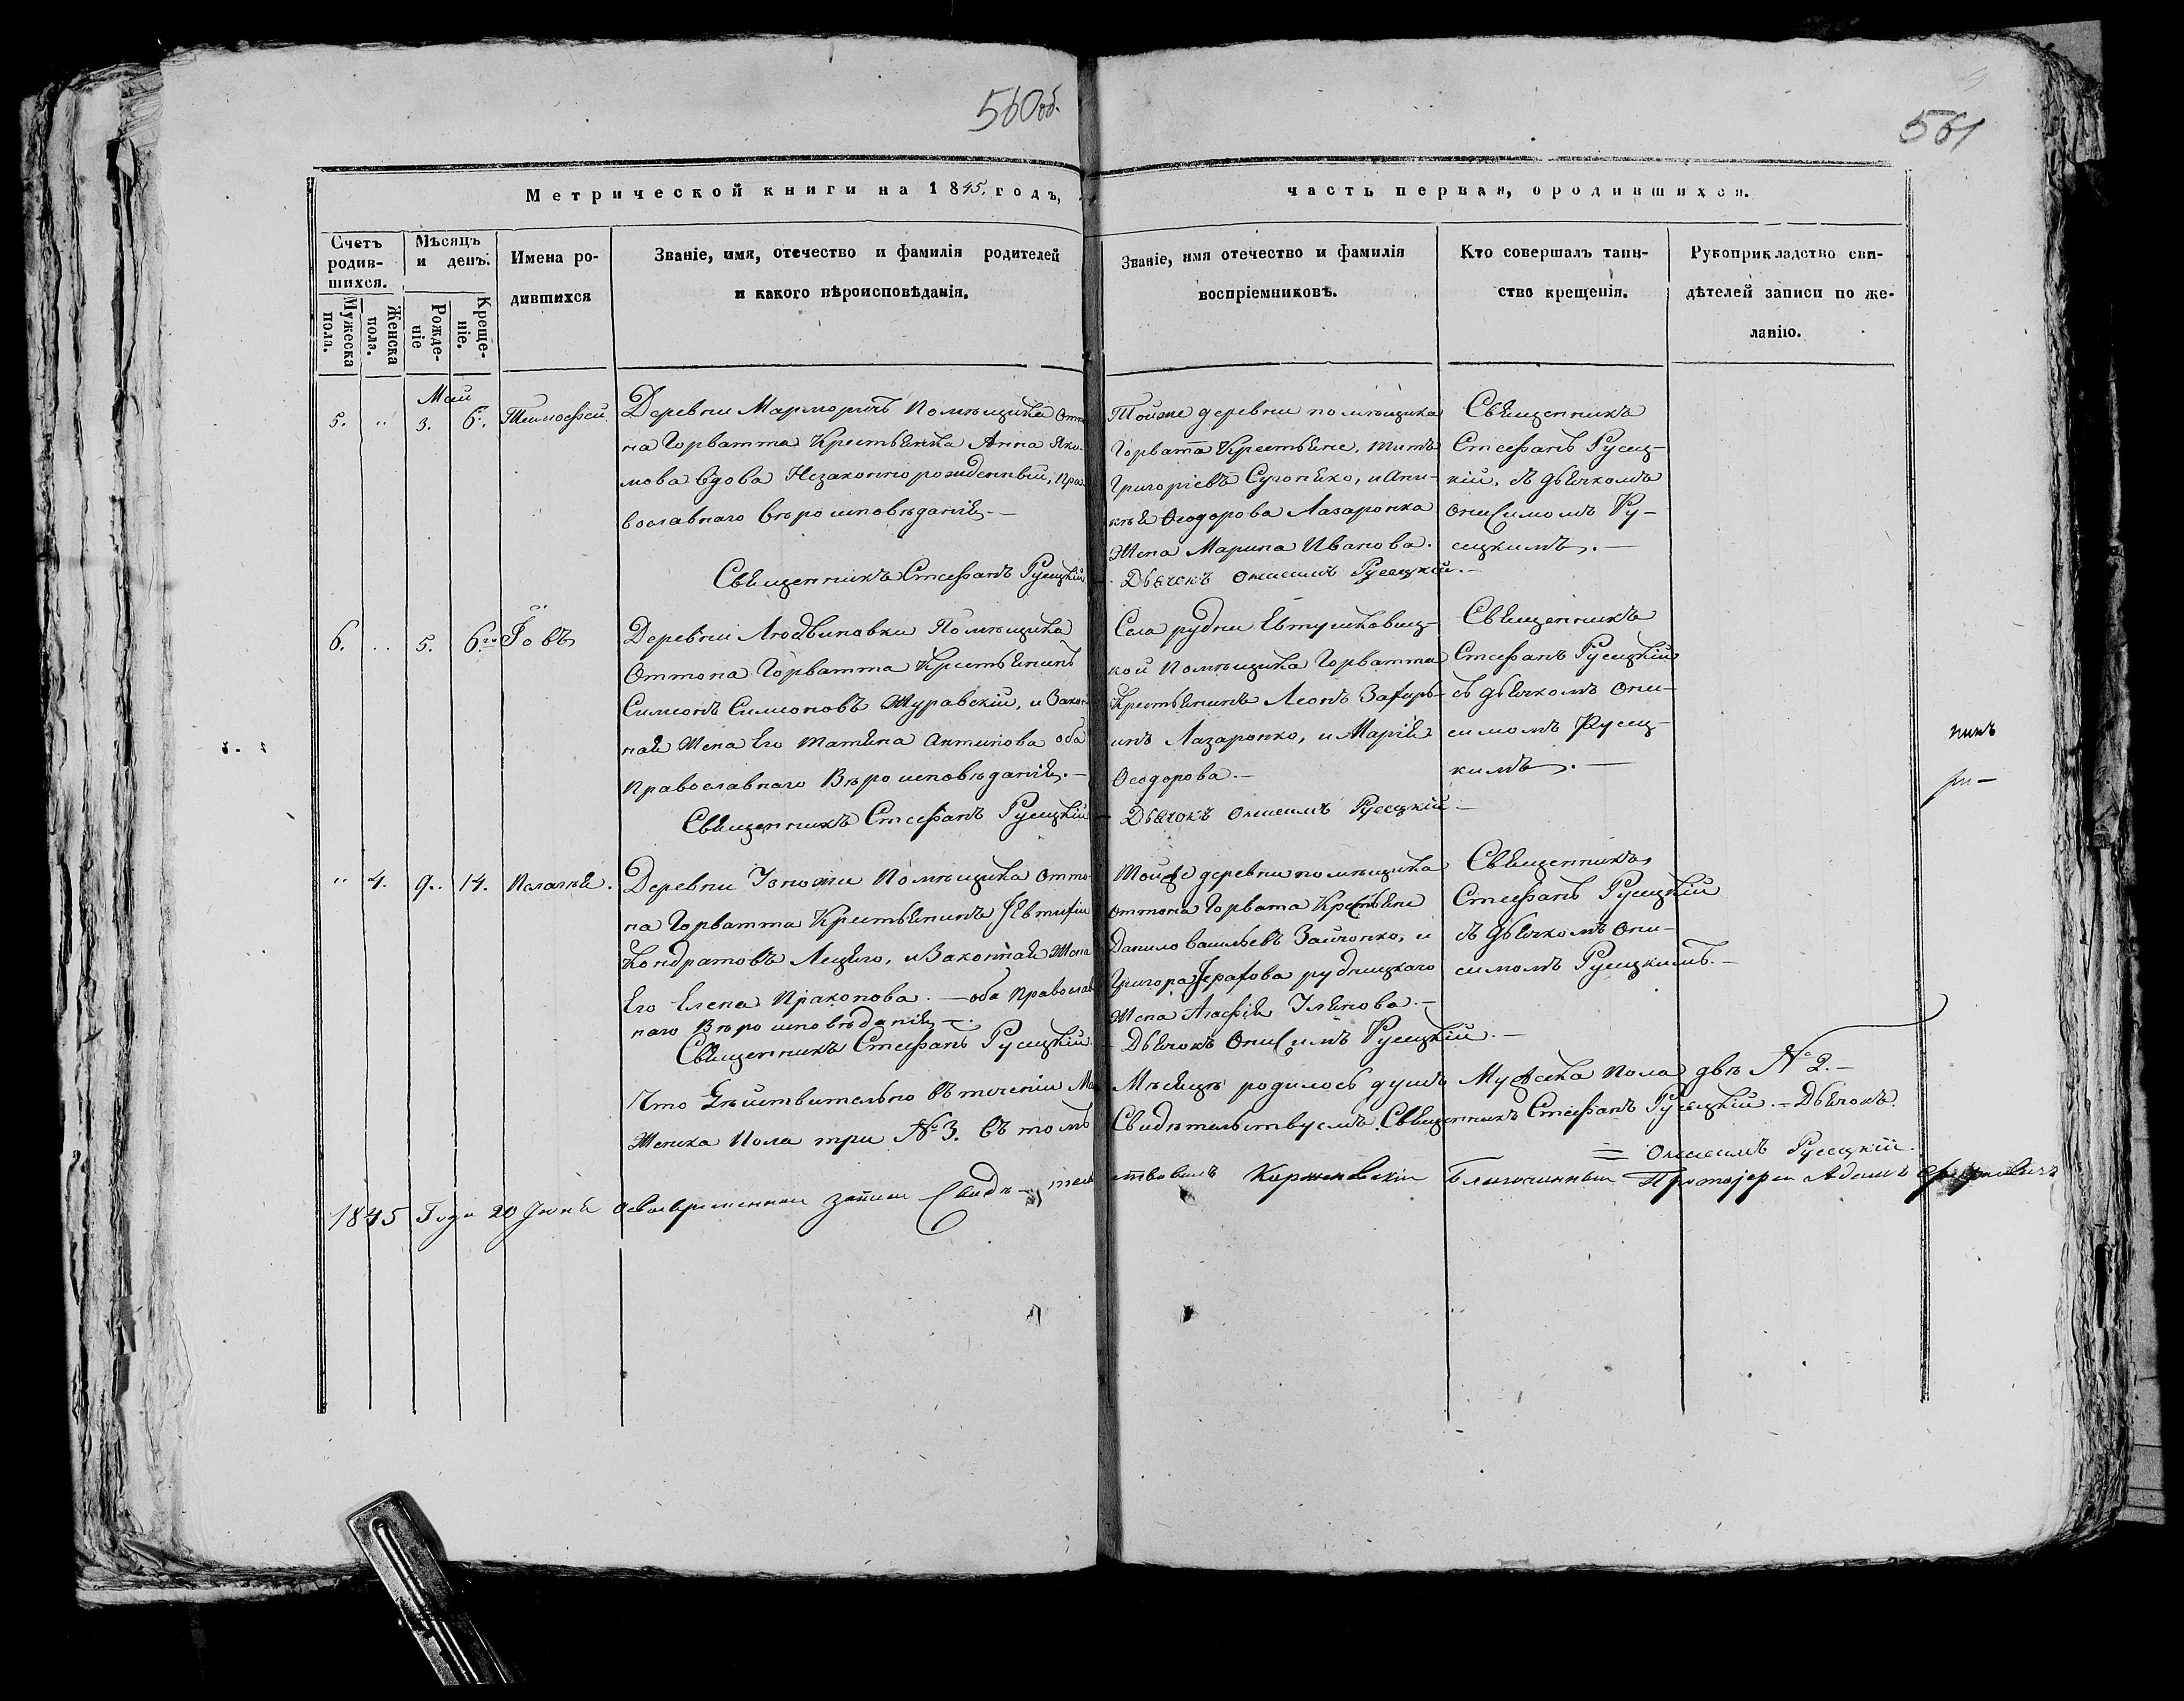 560об.
561
Метрической книги на 1845. годъ,
часть первая, о родившихся.
Счетъ родив-шихся.
Мужеска пола.
Женска пола.
Мѣсяцъ и день.
Рожде-ніе
Креще-ніе.
Имена ро-
дившихся
Званіе, имя, отечество и фамилія родителей
и какого вѣроисповѣданія.
Званіе, имя отечество и фамилія
воспріемниковъ.
Кто совершалъ таин-
ство крещенія.
Рукоприкладство сви-
дѣтелей записи по же-
ланію.
Май
5. " 3. 6. Тимофей
Деревни Марморичъ Помѣщика Отто
на Горватта Крестьянка Анна Яко-
мова вдова Незаконнорожденный, пра-
вославнаго вѣроисповѣданія.—
Священникъ Стефанъ Русецкій
Тойже деревни помѣщика
Горвата Крестьяне, титъ
Григоріевъ Сугоняко, и
Ѳеодорова Лазаронка
Жена Марина Иванова.
Дьячокъ Онисимъ Русецкій.—
Священникъ
Стефанъ Русец-
кій, съ дьячкомъ
Онисимомъ Ру-
сецкимъ.—
6. " 5. 6. Іовъ
Деревни Людвиновки Помѣщика
Оттона Горватта Крестьянинъ
Симеонъ Симеоновъ Журавскій, и Закон
ная Жена Его татяна Антипова оба
Православнаго Вѣроисповѣданія.—
Священникъ Стефанъ Русецкій
Села рудни Евтушковиц-
кой Помѣщика Горватта
Крестьянинъ Леонъ Захарь-
инъ Лазаронко, и Марія
Ѳеодорова.—
Дьячокъ Онисимъ Русецкій—
Священникъ
Стефанъ Русецкій
съ дьячкомъ Они-
симомъ Русец-
кимъ.—
" 4. 9. 14. Пелагія.
Деревни Помѣщика Отто-
на Горватта Крестьянинъ Евтихій
Кондратовъ и Законная Жена
Его Елена Пракопова.— оба Православ
наго Вѣроисповѣданія—.
Священникъ Стефанъ Русецкій
Тойже деревни помѣщика
Оттона Горвата Крестьяне
Данило васильевъ Зайчонко, и
Григора рудницкаго
Жена Агафія
Дьячокъ Онисимъ Русецкій.—
Священникъ
Стефанъ Русецкій
съ дьячкомъ Они-
симомъ Русецкимъ.—
Что Дѣйствительно въ теченіи Маѣ Мѣсяцѣ родилось душъ Мужеска пола двѣ №2.—
Женска Пола три №3. въ томъ Свидѣтельствуемъ. Священникъ Стефанъ Русецкій.— Дьячокъ
Онисимъ Русецкій.
1845 Года 20 Іюня Освоевременной записи Свидѣтельствовалъ Благочинный Протоіерей Адамъ
никъ